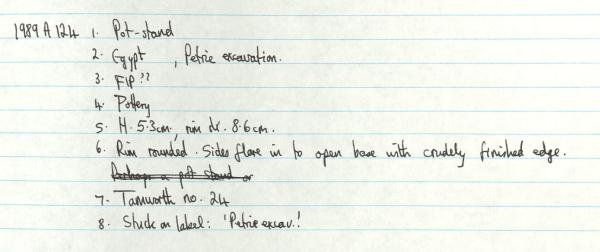 1989 A 124 1. Pot-stand
2. Egypt , Petrie excavation.
3. FIP??
4. Pottery
5. H. 5.3cm., rim dr. 8.6cm.
6. Rim rounded. Sides flare in to open base with crudely finished edge.
Perhaps a pot stand or
7. Tamworth no. 24
8. Stuck on label: 'Petrie excav.'